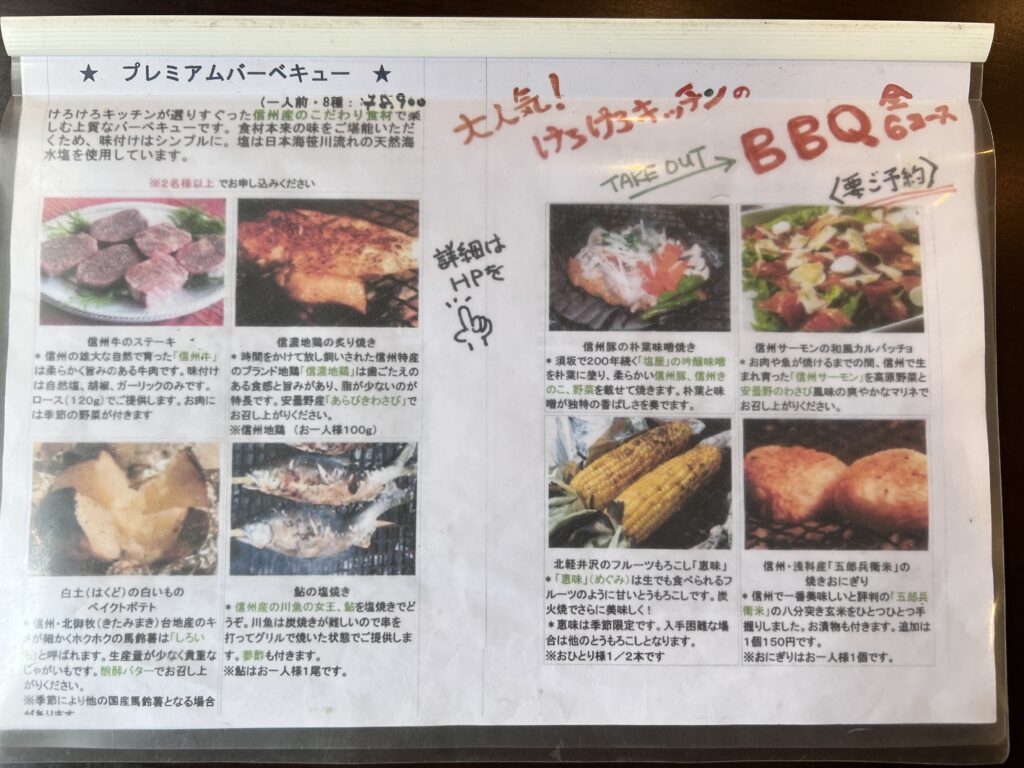 ★ プレミアムバーベキュー ★
(一人前・8種:
けろけろキッチンが選りすぐった信州産のこだわり食材で楽
しむ上質なバーベキューです。食材本来の味をご堪能いただ
くため、味付けはシンプルに。塩は日本海笹川流れの天然海
水塩を使用しています。
※2名様以上 でお申し込みください
信州牛のステーキ
* 信州の雄大な自然で育った「信州牛」
は柔らかく旨みのある牛肉です。味付け
は自然塩、胡椒、ガーリックのみです。
ロース(120g)でご提供します。お肉に
は季節の野菜が付きます
信濃地鶏の炙り焼き
* 時間をかけて放し飼いされた信州特産
のブランド地鶏「信濃地鶏」は歯ごたえの
ある食感と旨みがあり、脂が少ないのが
特長です。安曇野産「あらびきわさび」で
お召し上がりください。
※信州地鶏 (お一人様100g)
白土(はくど)の白いもの
ベイクトポテト
* 信州・北御牧(きたみまき)台地産のキ
メが細かくホクホクの馬鈴薯は「しろい
も」と呼ばれます。生産量が少なく貴重な
じゃがいもです。醗酵バターでお召し上
がりください。
※季節により他の国産馬鈴薯となる場合
があります
鮎の塩焼き
* 信州産の川魚の女王、鮎を塩焼きでど
うぞ。川魚は炭焼きが難しいので串を
打ってグリルで焼いた状態でご提供しま
す。蓼酢も付きます。
※鮎はお一人様1尾です。
大人気!
けろけろキッチンの
TAKE OUT → BBQ 全6コース
〈要ご予約〉
詳細は
HPを
信州豚の朴葉味噌焼き
* 須坂で200年続く「塩屋」の吟醸味噌
を朴葉に塗り、柔らかい信州豚、信州き
のこ、野菜を載せて焼きます。朴葉と味
噌が独特の香ばしさを奏でます。
信州サーモンの和風カルパッチョ
* お肉や魚が焼けるまでの間、信州で生
まれ育った「信州サーモン」を高原野菜と
安曇野のわさび風味の爽やかなマリネで
お召し上がりください。
北軽井沢のフルーツもろこし「恵味」
* 「恵味」(めぐみ)は生でも食べられるフ
ルーツのように甘いとうもろこしです。炭
火焼でさらに美味しく!
* 恵味は季節限定です。入手困難な場
合は他のとうもろこしとなります。
※おひとり様1/2本です
信州・浅科産「五郎兵衛米」の
焼きおにぎり
* 信州で一番美味しいと評判の「五郎兵
衛米」の八分突き玄米をひとつひとつ手
握りしました。お漬物も付きます。追加は
1個150円です。
※おにぎりはお一人様1個です。